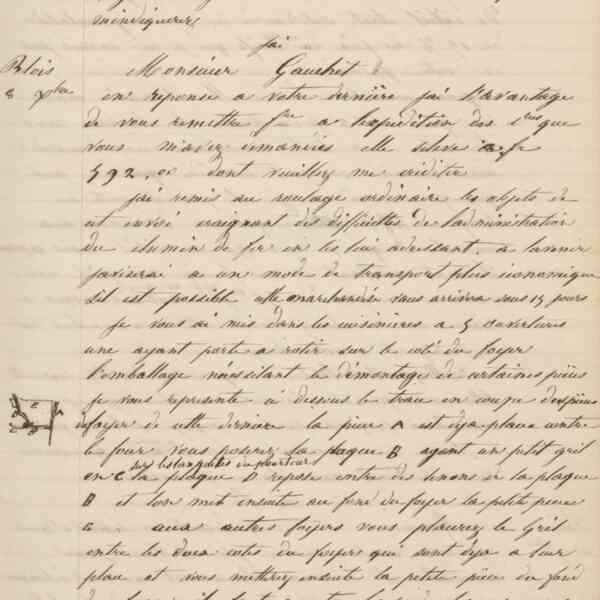 m'indiquerez
j'ai
Blois
8 Xbre
Monsieur Gauchet
en reponse a votre dernière jai l'avantage
de vous remettre fre a lexpedition des que
vous m'avez demandées elle selève a fr
592, dont veuillez me créditer
jai remis au roulage ordinaire les objets de
cet envoi craignant des difficultés de ladministration
du chemin de fer en les lui adressant. a lavenir
javiserai a un mode de transport plus économique
sil est possible cette marchandise vous arrivera sous 15 jours
Je vous ai mis dans les cuisinières a 5 ouvertures
une ayant porte a rotir sur le coté du foyer
l'emballage nécessitant le démontage de certaines pièces
Je vous represente ci dessous le tracé en coupe des pièces
foyer de cette dernière la pièce A est deja placée contre
le four vous poserez la plaque B ayant un petit gril
sur les tringles du pourtour
en C la plaque D repose entre des tenons et la plaque
B et lon met ensuite au fond du foyer la petite pièce
E. aux autres foyers vous placerez le Gril
entre les deux cotés du foyers qui sont deja a leur
place et vous mettrez ensuite la petite pièce du fond